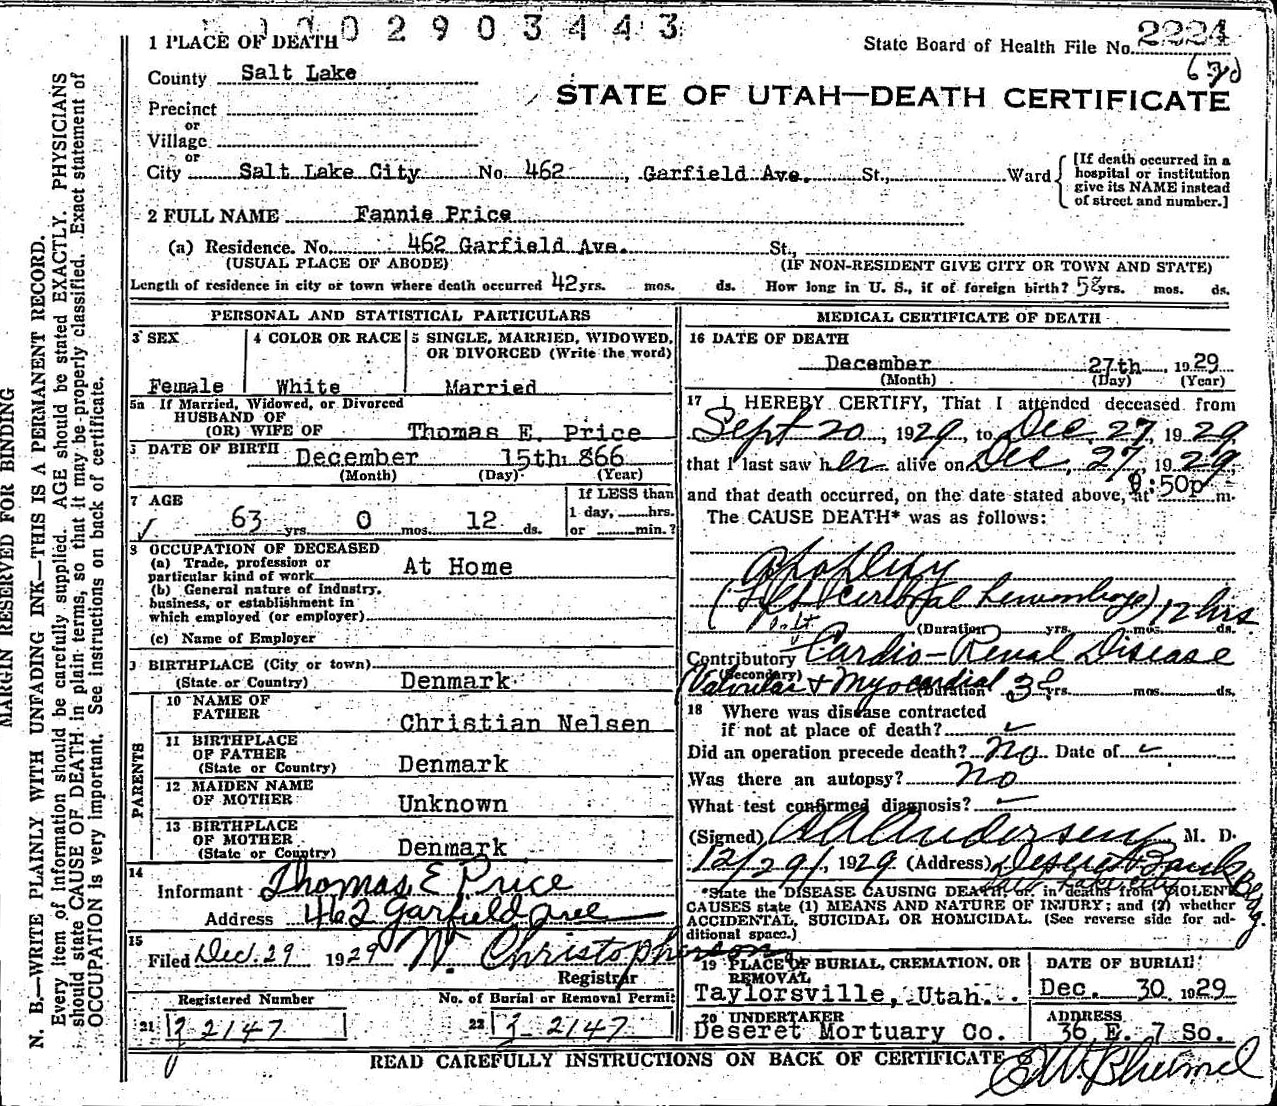 0 0 0 2 9 0 3 4 4 3
1 PLACE OF DEATH
State Board of Health File No. 2224
County Salt Lake
STATE OF UTAH—DEATH CERTIFICATE
Precinct
or
Village
or
City Salt Lake City No. 462, Garfield Ave. St., Ward
[If death occurred in a hospital or institution give its NAME instead of street and number.]
2 FULL NAME Fannie Price
(a) Residence. No. 462 Garfield Ave. St.,
(USUAL PLACE OF ABODE) (IF NON-RESIDENT GIVE CITY OR TOWN AND STATE)
Length of residence in city or town where death occurred 42 yrs. mos. ds. How long in U. S., if of foreign birth? 58 yrs. mos. ds.
PERSONAL AND STATISTICAL PARTICULARS
3 SEX
Female
4 COLOR OR RACE
White
5 SINGLE, MARRIED, WIDOWED, OR DIVORCED (Write the word)
Married
5a If Married, Widowed, or Divorced
HUSBAND OF
(OR) WIFE OF Thomas E. Price
DATE OF BIRTH December 15th 1866
(Month) (Day) (Year)
7 AGE
63 yrs. 0 mos. 12 ds.
If LESS than
1 day, hrs.
or min.?
8 OCCUPATION OF DECEASED
(a) Trade, profession or
particular kind of work At Home
(b) General nature of industry,
business, or establishment in
which employed (or employer)
(c) Name of Employer
9 BIRTHPLACE (City or town)
(State or Country) Denmark
PARENTS
10 NAME OF
FATHER Christian Nelsen
11 BIRTHPLACE
OF FATHER
(State or Country) Denmark
12 MAIDEN NAME
OF MOTHER Unknown
13 BIRTHPLACE
OF MOTHER
(State or Country) Denmark
14
Informant Thomas E Price
Address 462 Garfield Ave
15
Filed Dec. 29 1929 W. Christopherson
Registrar
Registered Number
21 2147
No. of Burial or Removal Permit
22 2147
MEDICAL CERTIFICATE OF DEATH
16 DATE OF DEATH
December 27th, 1929
(Month) (Day) (Year)
17 I HEREBY CERTIFY, That I attended deceased from
Sept 20, 1929, to Dec. 27, 1929,
that I last saw her alive on Dec, 27, 1929,
and that death occurred, on the date stated above, at 8:50p m.
The CAUSE DEATH* was as follows:
Apoplexy
(Left Cerebral hemorrhage) 12 hrs
(Duration yrs. mos. ds.
Contributory Cardio-Renal Disease
(Secondary)
Valvular & Myocardial (Duration 3 yrs. mos. ds.
18 Where was disease contracted
if not at place of death?
Did an operation precede death? No Date of
Was there an autopsy? no
What test confirmed diagnosis?
(Signed) Andersen M. D.
12/29/, 1929 (Address) Deseret Bank Bldg.
*State the DISEASE CAUSING DEATH, or in deaths from VIOLENT
CAUSES state (1) MEANS AND NATURE OF INJURY; and (2) whether
ACCIDENTAL, SUICIDAL OR HOMICIDAL. (See reverse side for ad-
ditional space.)
19 PLACE OF BURIAL, CREMATION, OR
REMOVAL
Taylorsville, Utah.
DATE OF BURIAL
Dec. 30 1929
20 UNDERTAKER
Deseret Mortuary Co.
ADDRESS
36 E. 7 So.
READ CAREFULLY INSTRUCTIONS ON BACK OF CERTIFICATE
MARGIN RESERVED FOR BINDING
N. B.—WRITE PLAINLY WITH UNFADING INK—THIS IS A PERMANENT RECORD.
Every item of information should be carefully supplied. AGE should be stated EXACTLY. PHYSICIANS
should state CAUSE OF DEATH in plain terms, so that it may be properly classified. Exact statement of
OCCUPATION is very important. See instructions on back of certificate.